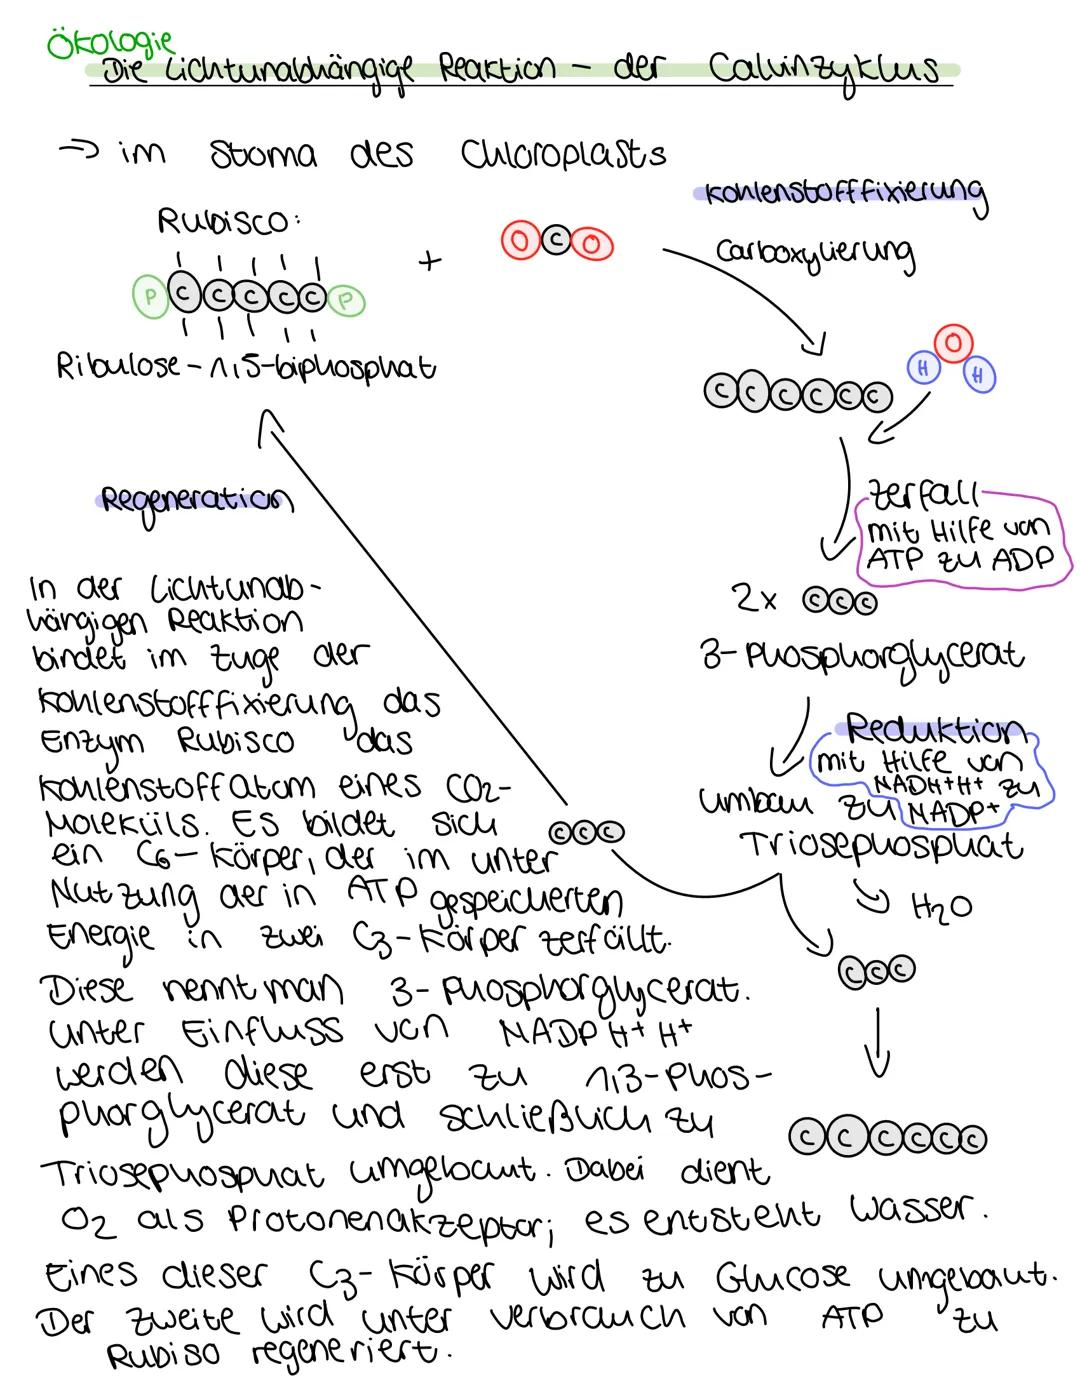 Ökologie
Die Lichtunabhängige Reaktion - der Calvinzyklus
→ im Stoma des Chloroplasts
Kohlenstofffixierung
Rubisco:
+
O C O
Carboxylierung
P C C C C C P
Ribulose-1,5-biphosphat
H O H
C C C C C C
Regeneration
Zerfall
mit Hilfe von
ATP zu ADP
2x C C C
3-Phosphorglycerat
Reduktion
mit Hilfe von
NADH+H+ zu
NADP+
Umbau zu
Triosephosphat
H2O
C C C
C C C
C C C C C C
In der Lichtunab-
hängigen Reaktion
bindet im Zuge der
Kohlenstofffixierung das
Enzym Rubisco das
Kohlenstoffatom eines CO2-
Moleküls. Es bildet sich
ein C6-Körper, der im unter
Nutzung der in ATP gespeicherten
Energie in zwei C3-Körper zerfällt.
Diese nennt man 3-Phosphorglycerat.
Unter Einfluss von NADPH+H+
werden diese erst zu 1,3-Phos-
phorglycerat und schließlich zu
Triosephosphat umgebaut. Dabei dient
O2 als Protonenakzeptor; es entsteht Wasser.
Eines dieser C3-Körper wird zu Glucose umgebaut.
Der zweite wird unter Verbrauch von ATP zu
Rubiso regeneriert.